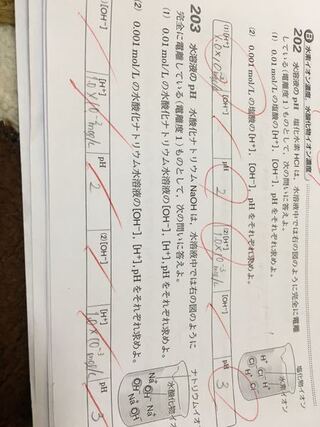 E 水素イオン濃度，水酸化物イオン濃度
202 水溶液の pH 塩化水素 HCl は，水溶液中では右の図のように完全に電離
している(電離度 1)ものとして，次の問いに答えよ。
(1) 0.01 mol/L の塩酸の[H⁺]，[OH⁻]，pH をそれぞれ求めよ。
(2) 0.001 mol/L の塩酸の[H⁺]，[OH⁻]，pH をそれぞれ求めよ。
塩化物イオン
水素イオン
H⁺ Cl⁻
Cl⁻ H⁺
(1) [H⁺] 1.0×10⁻² mol/L [OH⁻] pH 2 (2) [H⁺] 1.0×10⁻³ mol/L [OH⁻] pH 3
203 水溶液の pH 水酸化ナトリウム NaOH は，水溶液中では右の図のように
完全に電離している(電離度 1)ものとして，次の問いに答えよ。
(1) 0.01 mol/L の水酸化ナトリウム水溶液の[OH⁻]，[H⁺]，pH をそれぞれ求めよ。
(2) 0.001 mol/L の水酸化ナトリウム水溶液の[OH⁻]，[H⁺]，pH をそれぞれ求めよ。
ナトリウムイオ
水酸化物イオ
Na⁺ OH⁻ Na⁺
OH⁻ Na⁺ OH⁻
(1) [OH⁻] [H⁺] 1.0×10⁻² mol/L pH 2 (2) [OH⁻] [H⁺] 1.0×10⁻³ mol/L pH 3